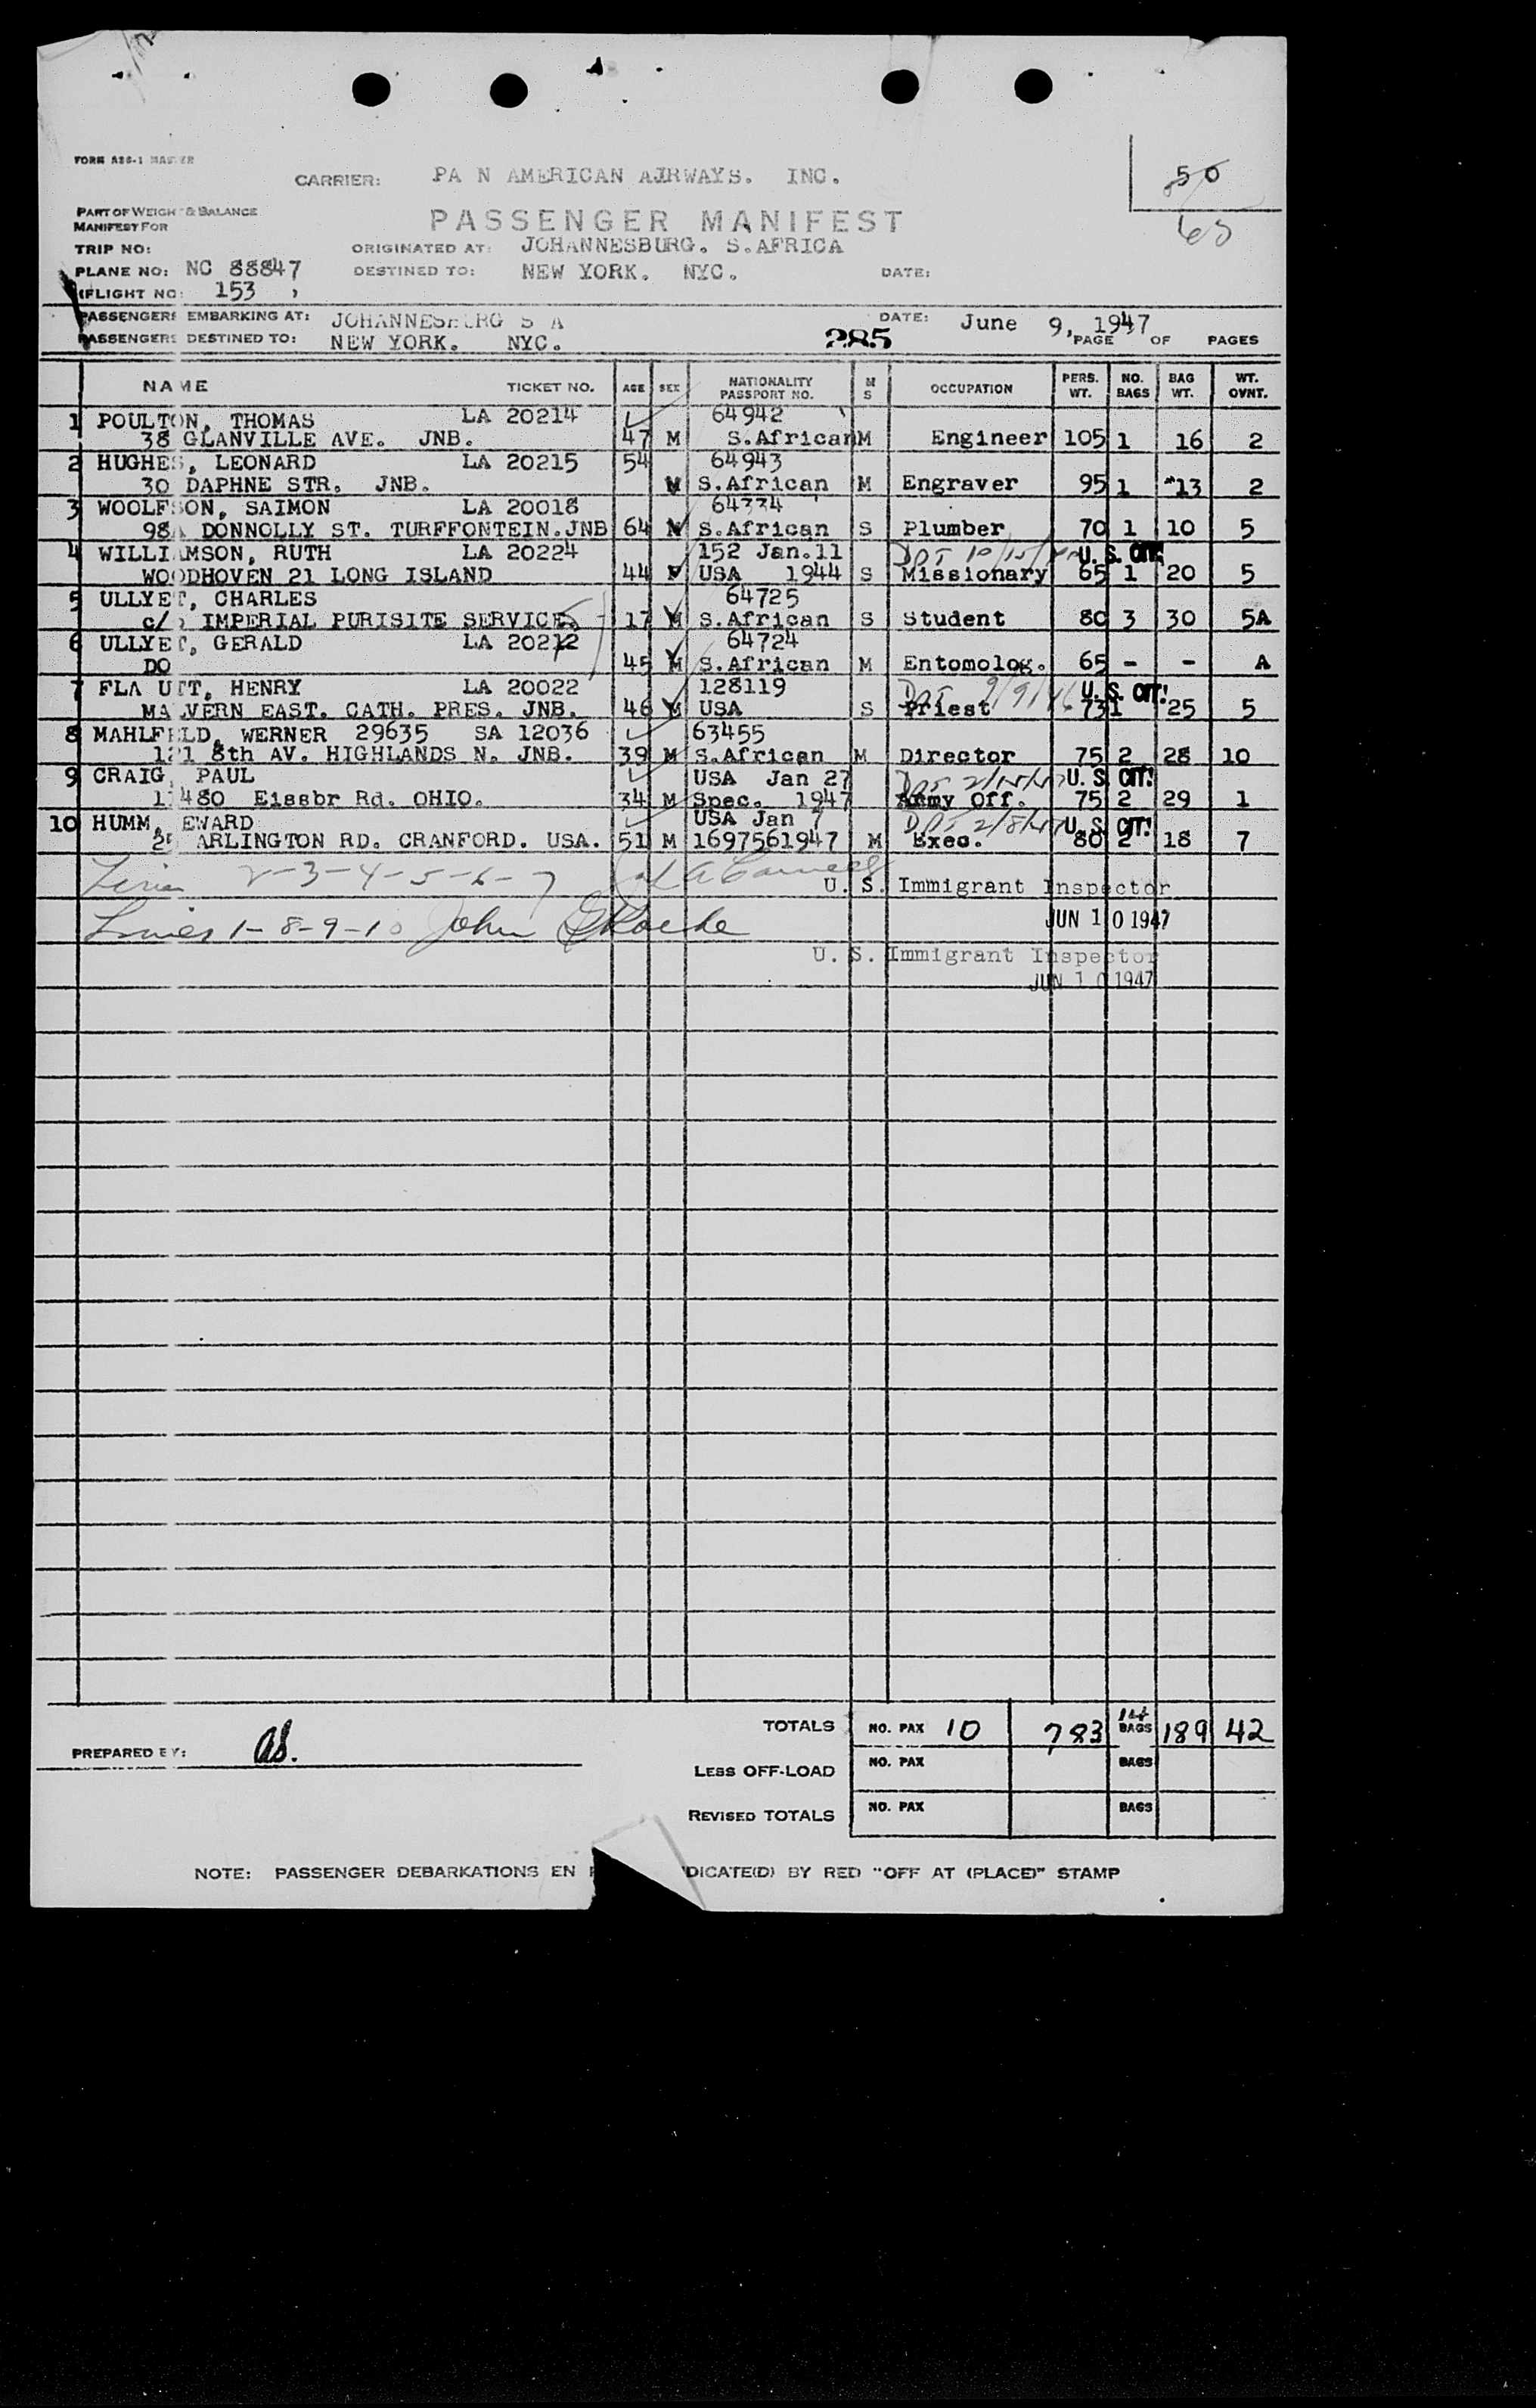 FORM A26-1 MASTER
CARRIER: PA N AMERICAN AIRWAYS. INC.
50
65
PART OF WEIGHT & BALANCE
MANIFEST FOR
PASSENGER MANIFEST
TRIP NO: ORIGINATED AT: JOHANNESBURG. S.AFRICA
PLANE NO: NC 88847 DESTINED TO: NEW YORK. NYC. DATE:
(FLIGHT NO: 153 )
PASSENGERS EMBARKING AT: JOHANNESBURG S A DATE: June 9, 1947
PASSENGERS DESTINED TO: NEW YORK. NYC. 285 PAGE OF PAGES
NAME TICKET NO. AGE SEX NATIONALITY PASSPORT NO. M S OCCUPATION PERS. WT. NO. BAGS BAG WT. WT. OVNT.
1 POULTON, THOMAS LA 20214 64942
38 GLANVILLE AVE. JNB. 47 M S.African M Engineer 105 1 16 2
2 HUGHES, LEONARD LA 20215 54 64943
30 DAPHNE STR. JNB. M S.African M Engraver 95 1 13 2
3 WOOLFSON, SAIMON LA 20018 64334
98A DONNOLLY ST. TURFFONTEIN.JNB 64 M S.African S Plumber 70 1 10 5
4 WILLIAMSON, RUTH LA 20224 152 Jan.11 U.S. CIT.
WOODHOVEN 21 LONG ISLAND 44 F USA 1944 S Missionary 65 1 20 5
5 ULLYET, CHARLES 64725
c/o IMPERIAL PURISITE SERVICE 17 M S.African S Student 80 3 30 5A
6 ULLYET, GERALD LA 20212 64724
DO 45 M S.African M Entomolog. 65 - - A
7 FLA UTT, HENRY LA 20022 128119 9/9/46 U.S. CIT.
MALVERN EAST. CATH. PRES. JNB. 46 M USA S Priest 73 1 25 5
8 MAHLFELD, WERNER 29635 SA 12036 63455
121 8th AV. HIGHLANDS N. JNB. 39 M S.African M Director 75 2 28 10
9 CRAIG, PAUL USA Jan 27 U.S. CIT.
11480 Eissbr Rd. OHIO. 34 M Spec. 1947 Army Off. 75 2 29 1
10 HUMM, EWARD USA Jan 7 2/8/47 U.S. CIT.
25 ARLINGTON RD. CRANFORD. USA. 51 M 1697561947 M Exec. 80 2 18 7
2-3-4-5-6-7
U. S. Immigrant Inspector
Lines 1-8-9-10 John
JUN 10 1947
U. S. Immigrant Inspector
JUN 10 1947
TOTALS NO. PAX 10 783 14 BAGS 189 42
PREPARED BY:
LESS OFF-LOAD NO. PAX BAGS
REVISED TOTALS NO. PAX BAGS
NOTE: PASSENGER DEBARKATIONS EN DICATE(D) BY RED "OFF AT (PLACE)" STAMP